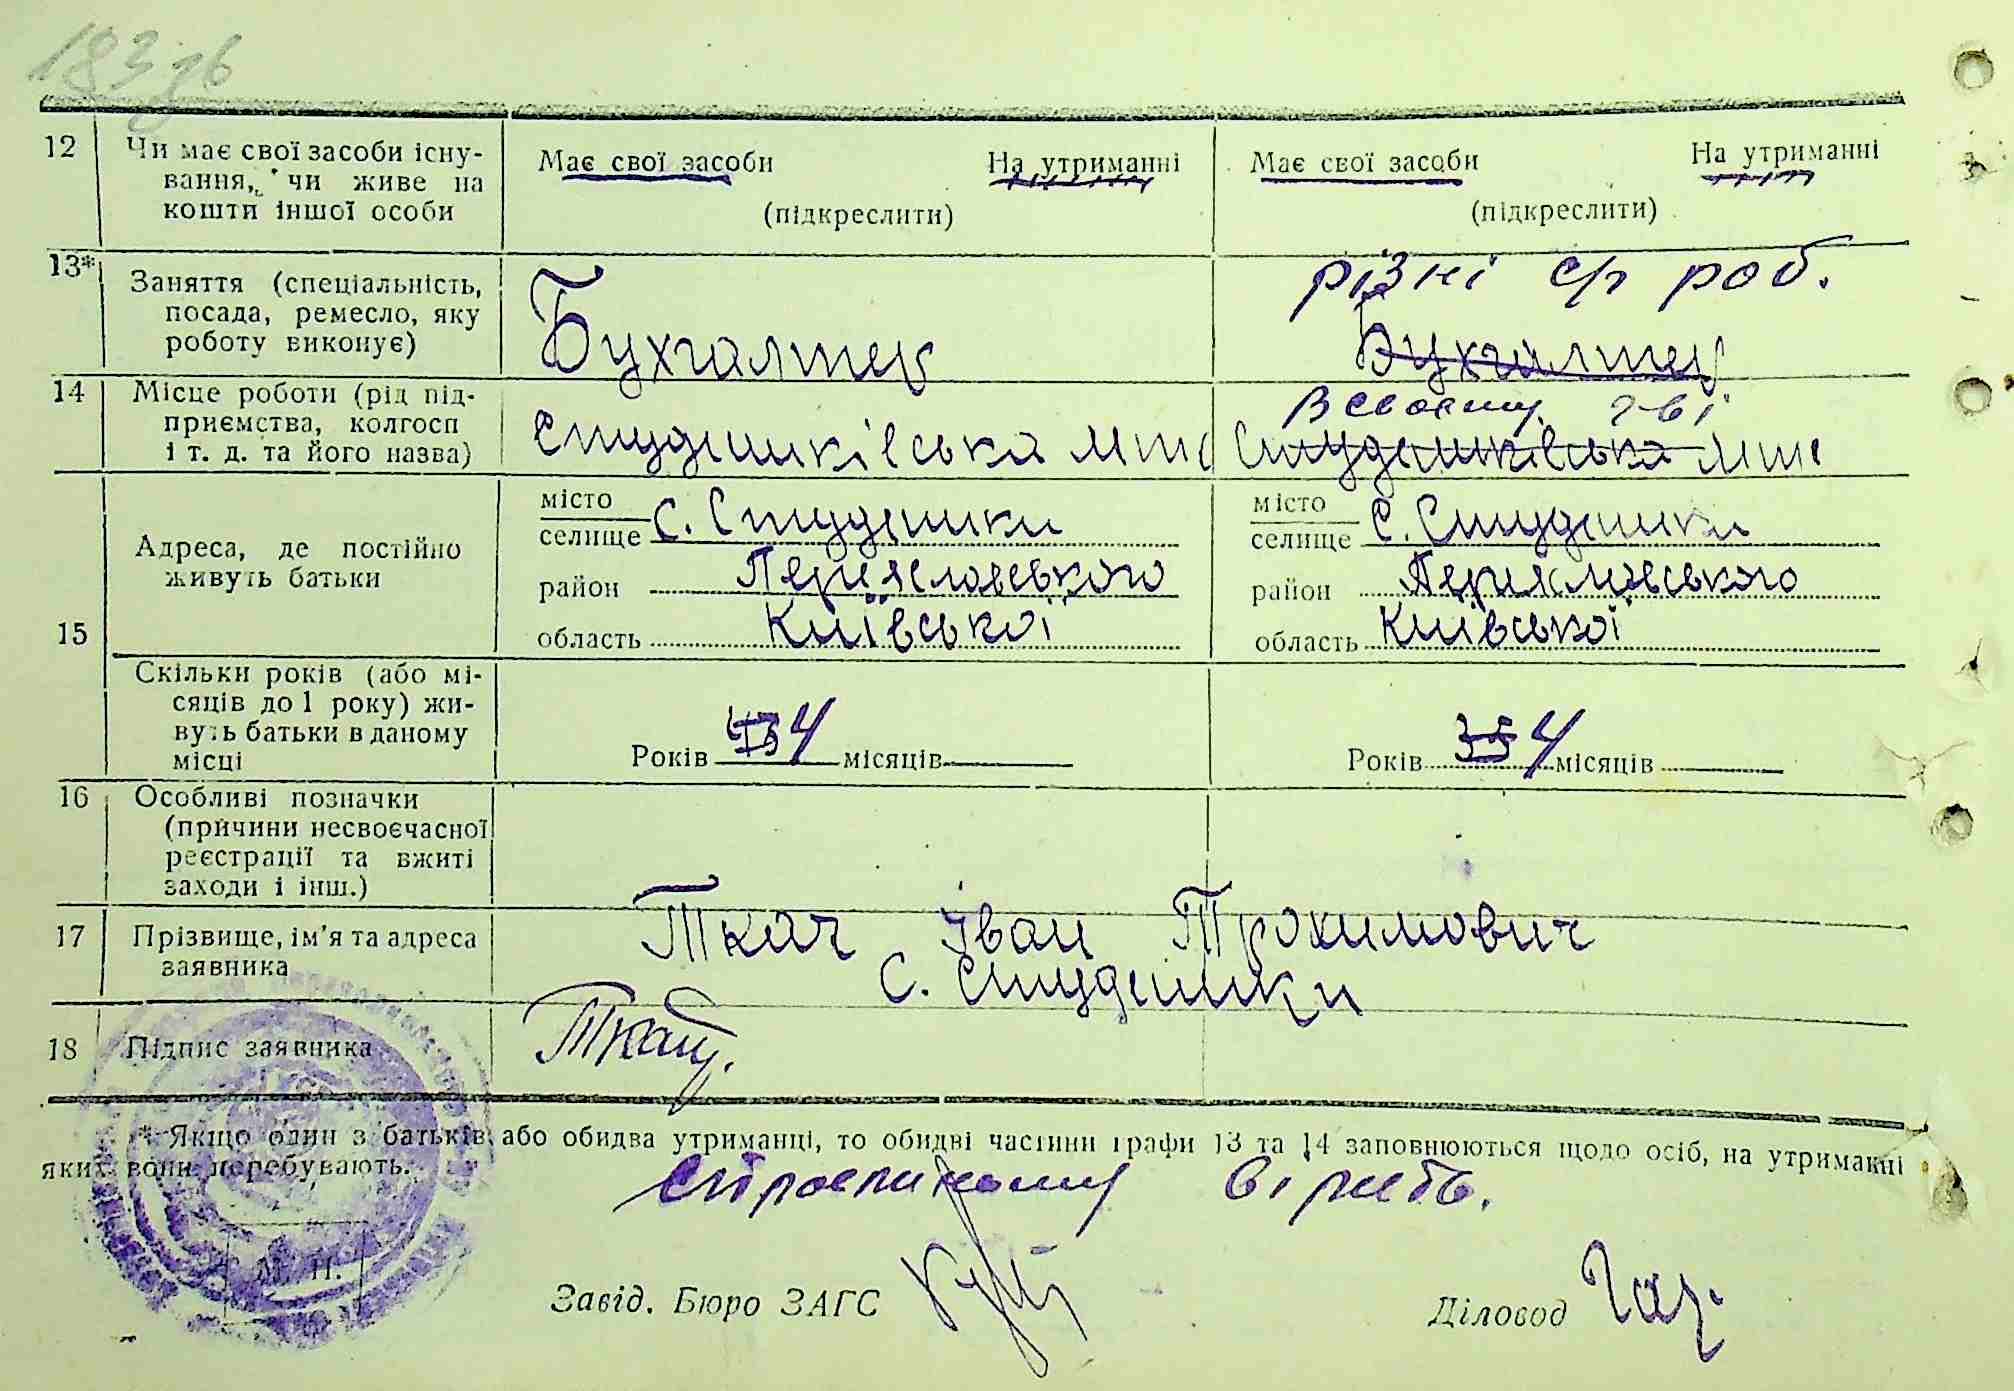 183 зв
12 Чи має свої засоби існу-
вання, чи живе на
кошти іншої особи
Має свої засоби На утриманні
(підкреслити)
Має свої засоби На утриманні
(підкреслити)
13* Заняття (спеціальність,
посада, ремесло, яку
роботу виконує)
Бухгалтер
різні с/г роб.
Бухгалтер
14 Місце роботи (рід під-
приємства, колгосп
і т. д. та його назва)
Студениківська мтс
В своєму г-ві
Студениківська мтс
15 Адреса, де постійно
живуть батьки
місто
селище с. Студеники
район Переяславського
область Київської
місто
селище с. Студеники
район Переяславського
область Київської
Скільки років (або мі-
сяців до 1 року) жи-
вуть батьки в даному
місці
Років 4 місяців
Років 35 4 місяців
16 Особливі позначки
(причини несвоєчасної
реєстрації та вжиті
заходи і інш.)
17 Прізвище, ім'я та адреса
заявника
Ткач Іван Трохимович
с. Студеники
18 Підпис заявника
Ткач.
* Якщо один з батьків, або обидва утриманці, то обидві частини графи 13 та 14 заповнюються щодо осіб, на утриманні
яких вони перебувають.
вірить.
М. П.
Завід. Бюро ЗАГС
Діловод